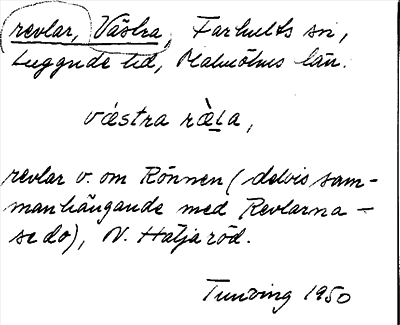 revlar, Västra, Farhults sn,
Luggude hd, Malmöhus län.
våstra ràla,
revlar v. om Rönnen (delvis sam-
manhängande med Revlarna –
se do), N. Häljaröd.
Tunving 1950